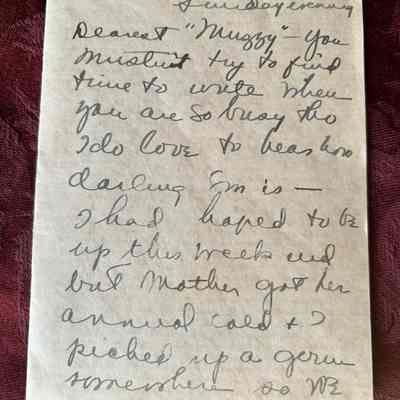 Sunday evening
Dearest "Muzzy" - You
mustn't try to find
time to write when
you are so busy tho
I do love to hear how
darling Em is —
I had hoped to be
up this week end
but Mother got her
annual cold & I
picked up a germ
somewhere so WE